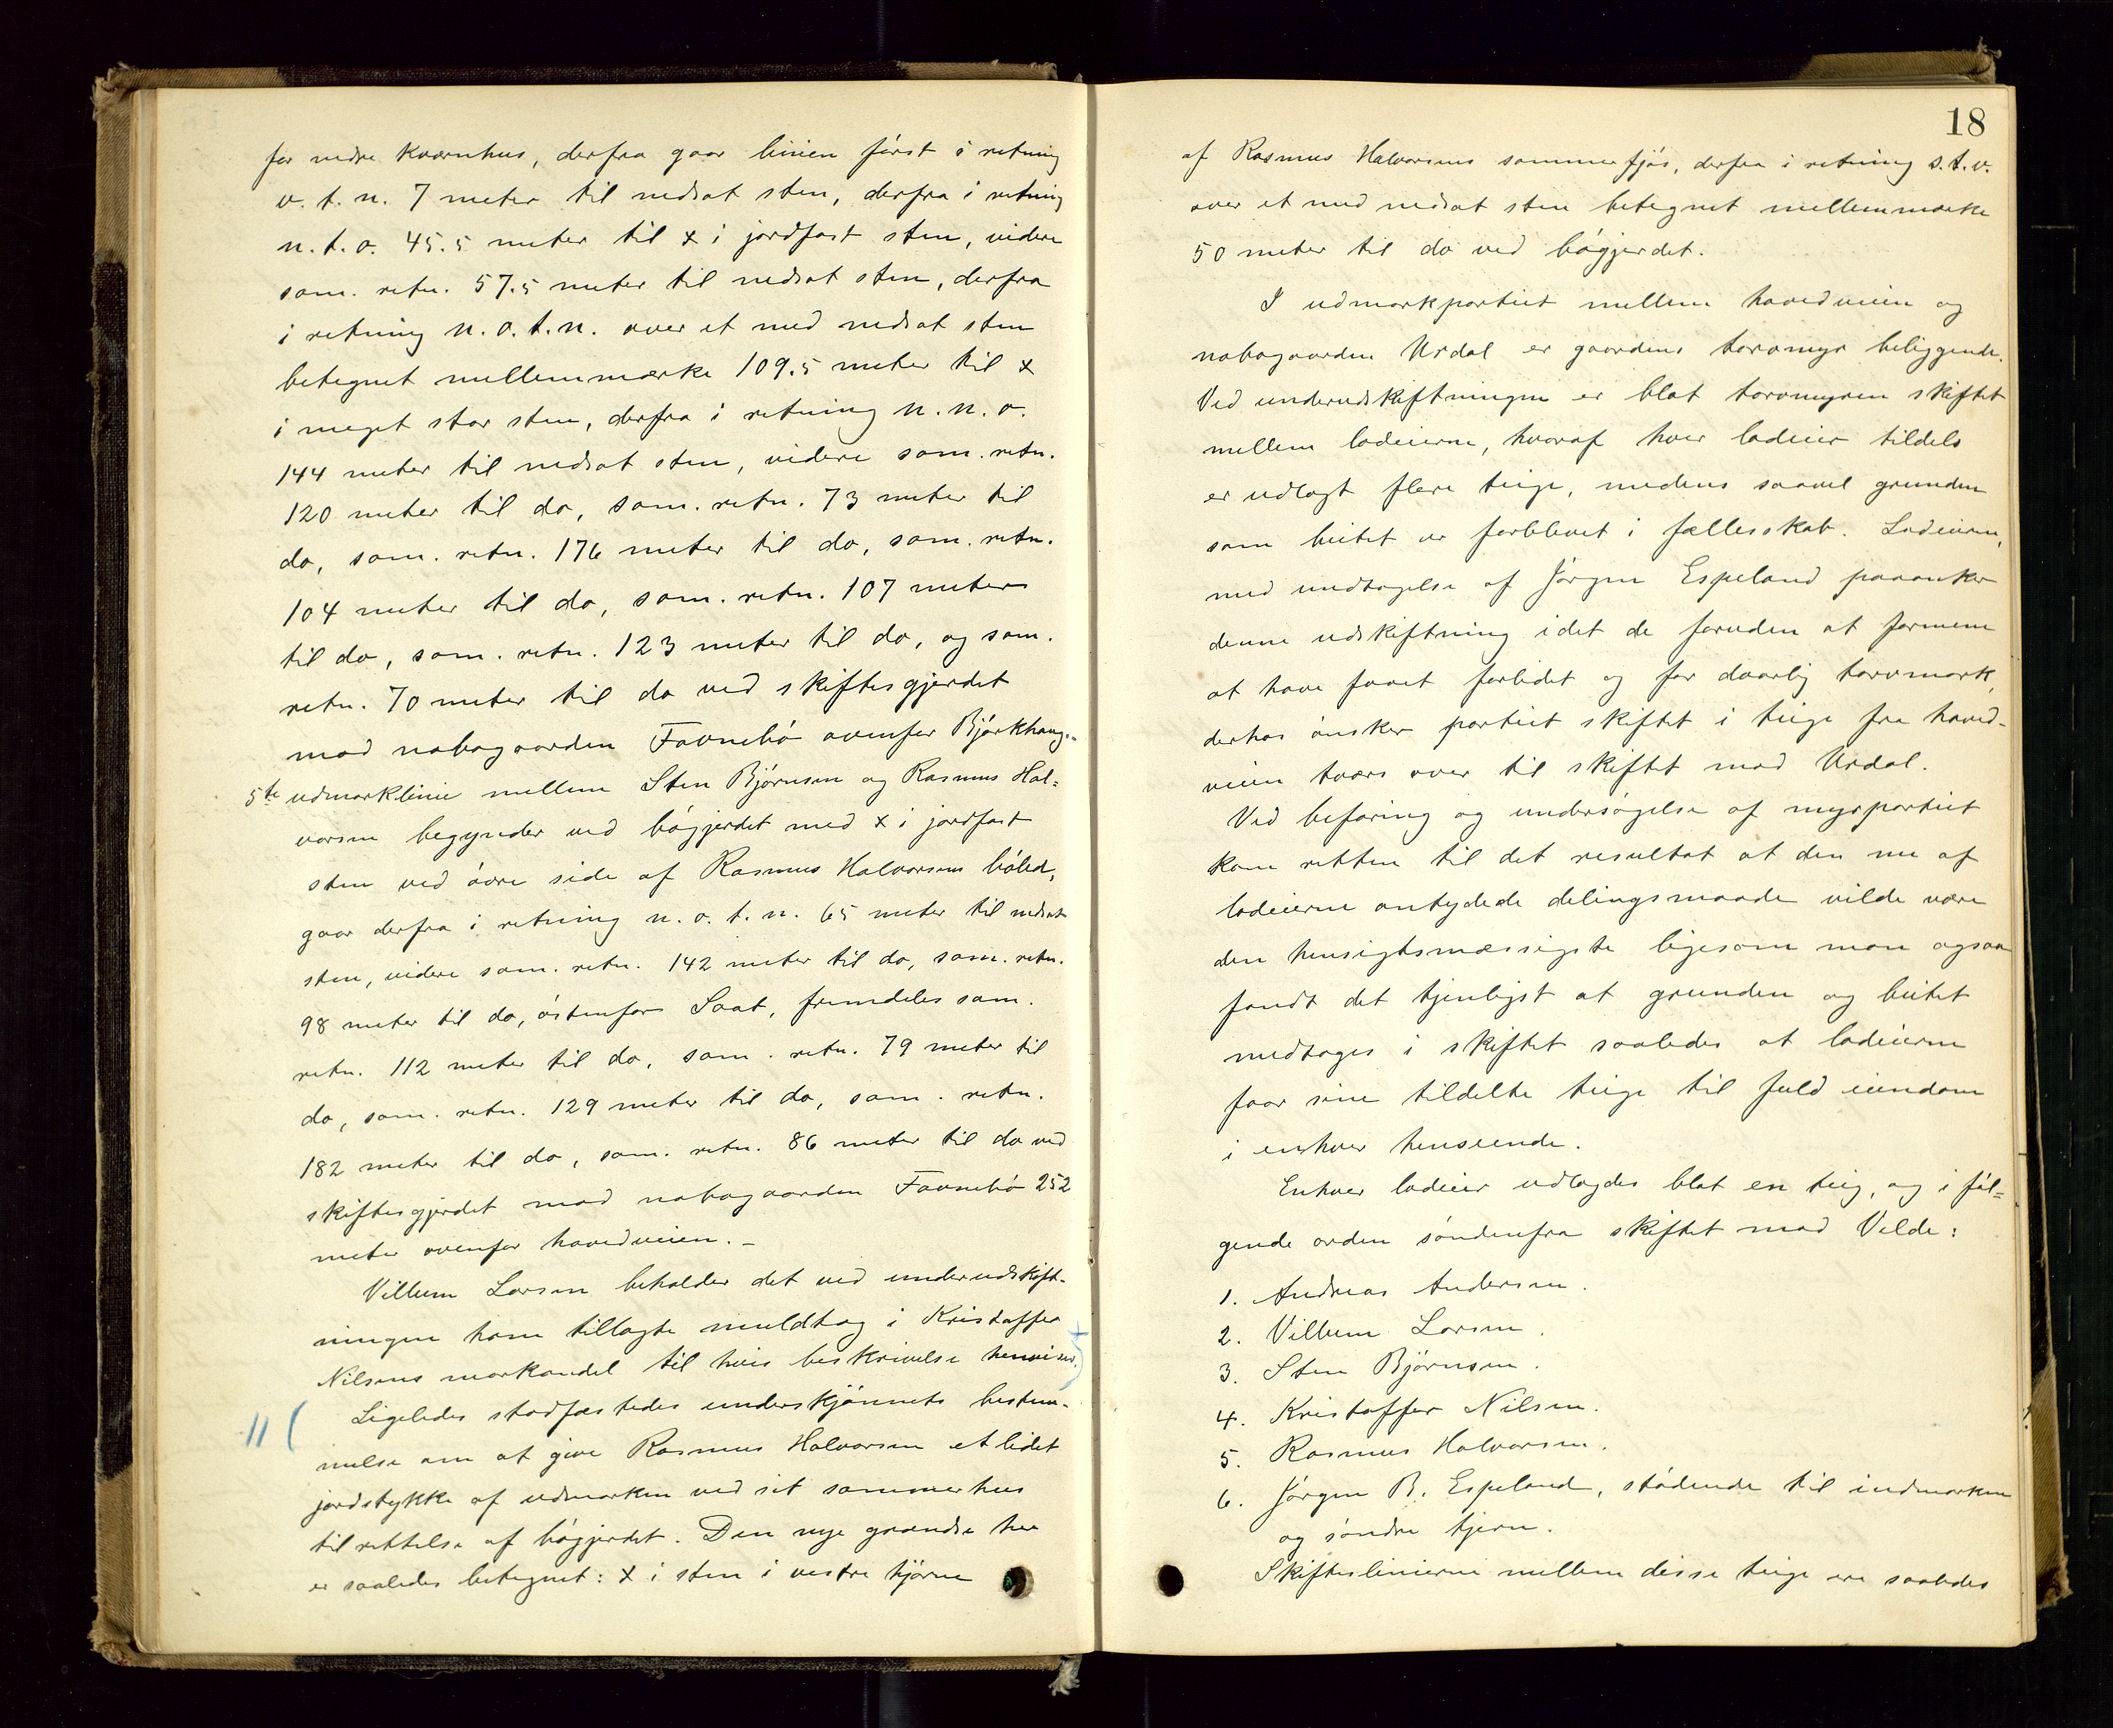 for nedre kværnhus, derfra gaar linien først i retning
v. t. n. 7 meter til nedsat sten, derfra i retning
n. t. o. 45.5 meter til x i jordfast sten, videre
sam. retn. 57.5 meter til nedsat sten, derfra
i retning n. o. t. n. over et med nedsat sten
betegnet mellemmærke 109.5 meter til x
i meget stor sten, derfra i retning n. n. o.
144 meter til nedsat sten, videre sam. retn.
120 meter til do, sam. retn. 73 meter til
do, sam. retn. 176 meter til do, sam. retn.
104 meter til do, sam. retn. 107 meter
til do, sam. retn. 123 meter til do, og sam.
retn. 70 meter til do ved skiftesgjerdet
mod nabogaarden Favnebø ovenfor Bjørkhaug.-
5te udmarklinie mellem Sten Bjørnsen og Rasmus Hal=
vorsen begynder ved bøgjerdet med x i jordfast
sten ved øvre side af Rasmus Halvorsens bøled,
gaar derfra i retning n. o. t. n. 65 meter til nedsat
sten, videre sam. retn. 142 meter til do, sam. retn.
98 meter til do, østenfor Saat, fremdeles sam.
retn. 112 meter til do, sam. retn. 79 meter til
do, sam. retn. 129 meter til do, sam. retn.
182 meter til do, sam. retn. 86 meter til do ved
skiftesgjerdet mod nabogaarden Favnebø 252
meter ovenfor hovedveien.-
Villum Larsen beholder det ved underudskift-
ningen ham tillagte muldtag i Kristoffer
Nilsens markandel til hvis beskrivelse henvises.
11 ( Ligeledes stadfæstedes underskjønnets bestem-
melse om at give Rasmus Halvorsen et lidet
jordstykke af udmarken ved sit sommerhus
til rettelse af bøgjerdet. Den nye grændse her
er saaledes betegnet: x i sten i vestre hjørne
18
af Rasmus Halvorsens sommerfjøs, derfra i retning s. t. v.
over et med nedsat sten betegnet mellemmærke
50 meter til do ved bøgjerdet.
I udmarkpartiet mellem hovedveien og
nabogaarden Urdal er gaardens torvmyr beliggende.
Ved underudskiftningen er blot torvmyren skiftet
mellem lodeierne, hvoraf hver lodeier tildels
er udlagt flere teige, medens saavel grunden
som beitet er forblevet i fællesskab. Lodeierne,
med undtagelse af Jørgen Espeland paaanker
denne udskiftning idet de foruden at formene
at have faaet forlidet og for daarlig torvmark,
derhos ønsker partiet skiftet i teige fra hoved-
veien tværs over til skiftet mod Urdal.
Ved befaring og undersøgelse af myrpartiet
kom retten til det resultat at den nu af
lodeierne antydede delingsmaade vilde være
den hensigtsmæssigste ligesom man ogsaa
fandt det tjenligst at grunden og beitet
medtages i skiftet saaledes at lodeierne
faar sine tildelte teige til fuld eiendom
i enhver henseende.
Enhver lodeier udlagdes blot en teig, og i føl=
gende orden søndenfra skiftet mod Velde:
1. Andreas Andersen.
2. Villum Larsen.
3. Sten Bjørnsen.
4. Kristoffer Nilsen.
5. Rasmus Halvorsen.
6. Jørgen B. Espeland, stødende til indmarken
og søndre tjern.
Skifteslinierne mellem disse teige ere saaledes